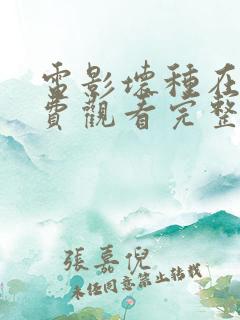 電影壞種在
費觀看完整
張嘉倪
未经同意禁止转载